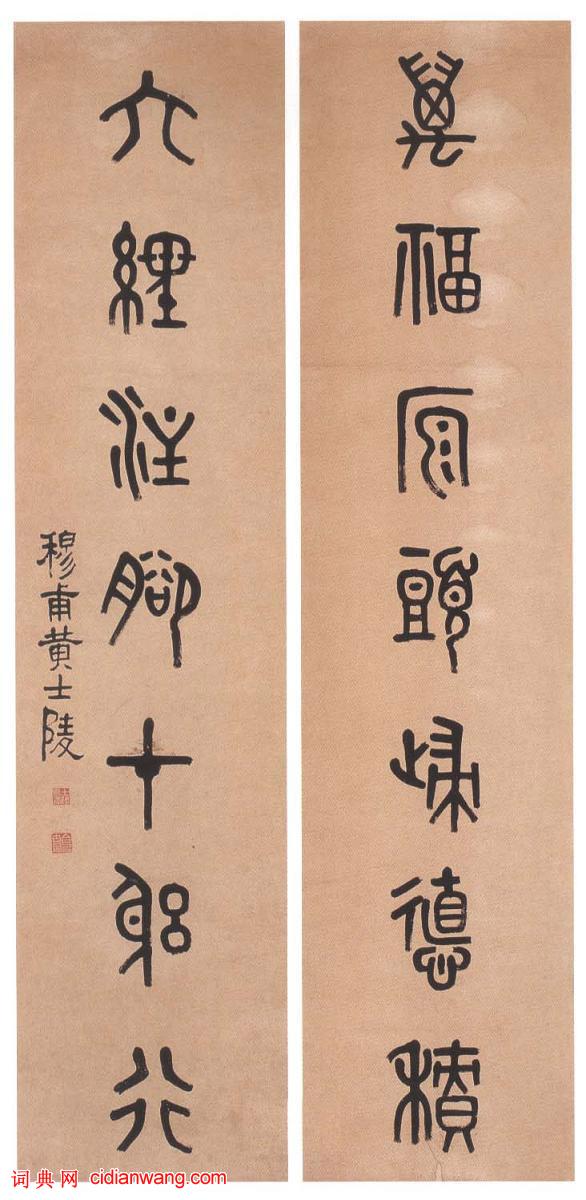 萬福原頭歸德積
六經注腳在躳行
穆甫黄士陵
词典网 cidianwang.com